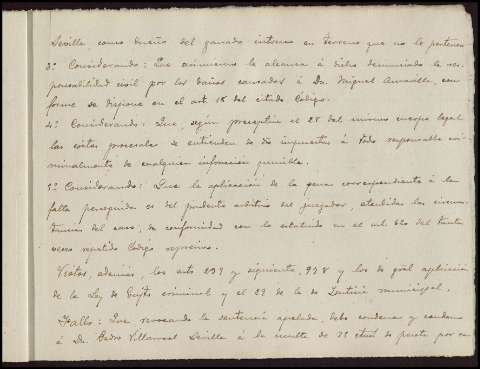 Sevilla, como dueño del ganado intruso en terreno que no le pertenece
3º Considerando: Que asimismo le alcanza á dicho denunciado la res-
ponsabilidad civil por los daños causados á Dn. Miguel con
forme se dispone en el art. 18 del citado Código.
4º Considerando: Que, según preceptúa el 28 del mismo cuerpo legal
las costas procesales se entienden impuestas á todo responsable cri-
minalmente de cualquier infracción punible.
5º Considerando: Que la aplicación de la pena correspondiente á la
falta perseguida es del prudente arbitrio del juzgador, atendidas las circuns-
tancias del caso, de conformidad con lo estatuido en el art. 620 del tantas
veces repetido Código represivo.
Vistos, además, los arts 239 y siguientes, 978 y los de gral aplicación
de la Ley de Enjto criminal y el 29 de la de Justicia municipal.
Fallo: Que revocando la sentencia apelada, debo condenar y condeno
á Dn. Pedro Villarreal Sevilla á la multa de 75 ctmos de peseta por